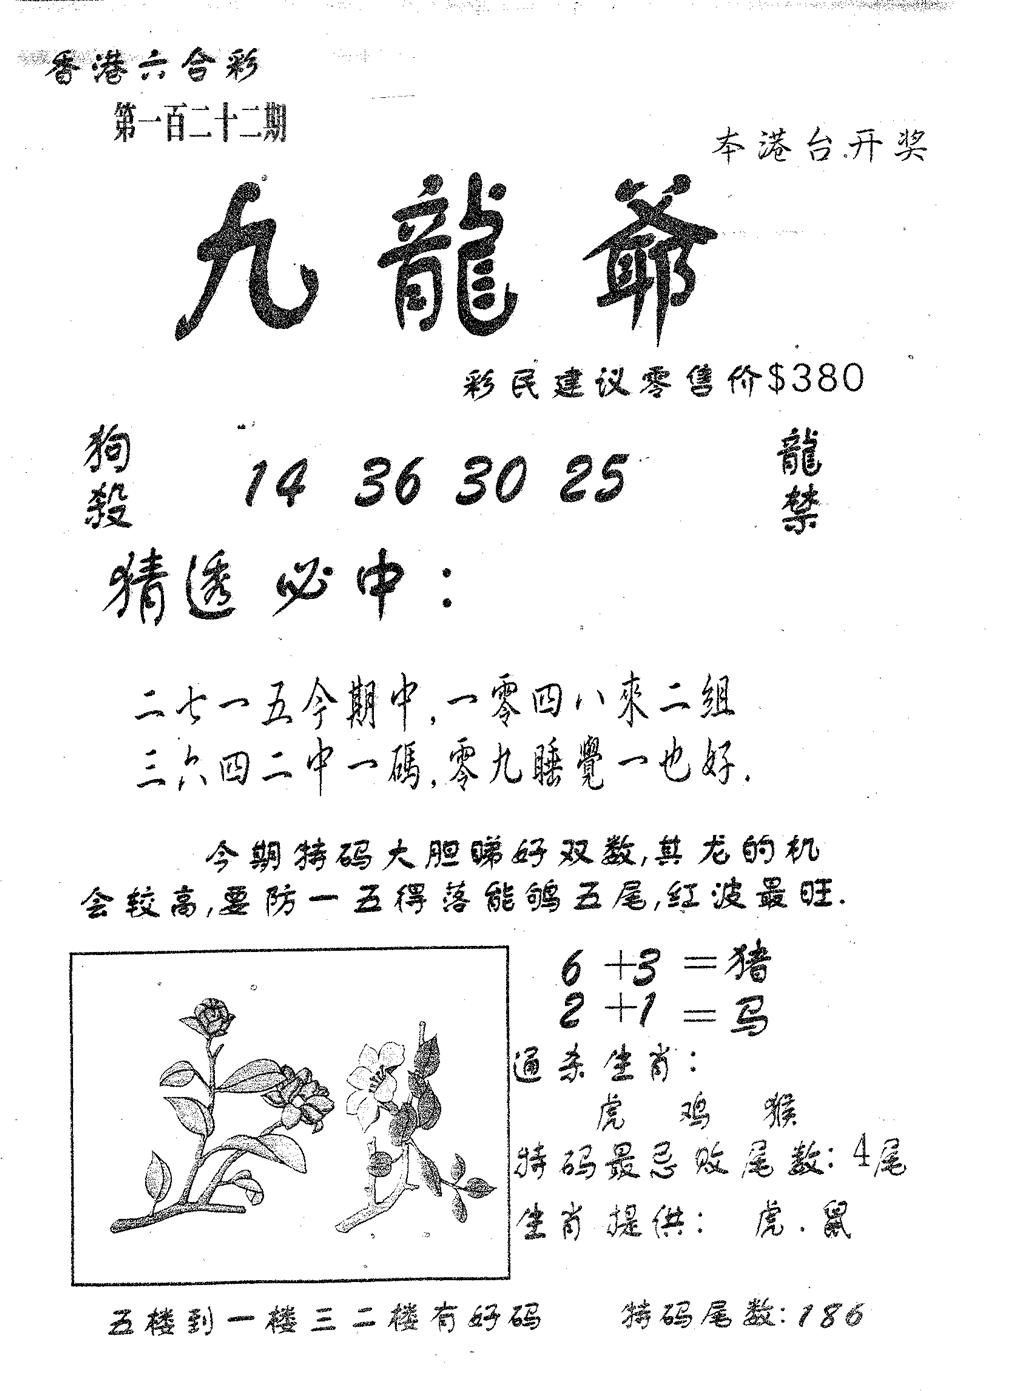 香港六合彩
第一百二十二期
本港台.开奖
九龍爺
彩民建议零售价$380
狗殺
14 36 30 25
龍禁
猜透必中：
二七一五今期中,一零四八來二组
三六四二中一碼,零九睡覺一也好.
今期特码大胆睇好双数,其龙的机
会较高,要防一五得落能鸲五尾,红波最旺.
6+3=猪
2+1=马
通杀生肖：
虎 鸡 猴
特码最忌败尾数：4尾
生肖提供： 虎.鼠
五楼到一楼三二楼有好码 特码尾数：186